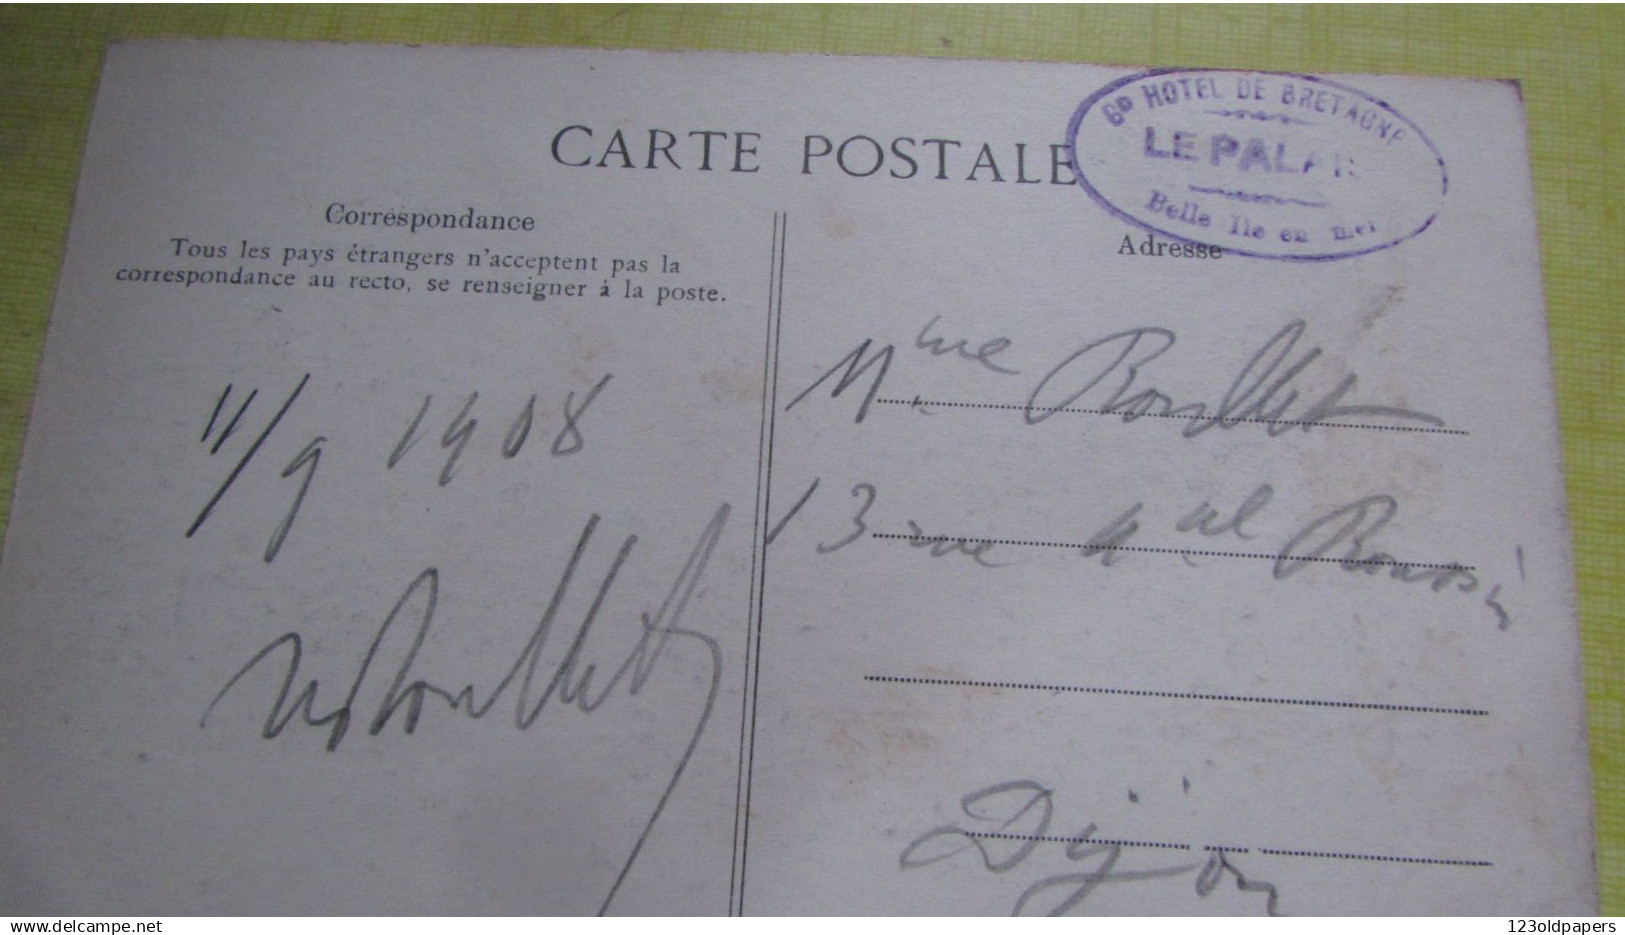 Gᴰ HOTEL DE BRETAGNE
LE PALAIS
Belle Ile en mer
CARTE POSTALE
Correspondance
Tous les pays étrangers n'acceptent pas la
correspondance au recto, se renseigner à la poste.
Adresse
11/9 1908
Mme Roullet
13 rue Aal Roussin
Dijon
delcampe.net
123oldpapers